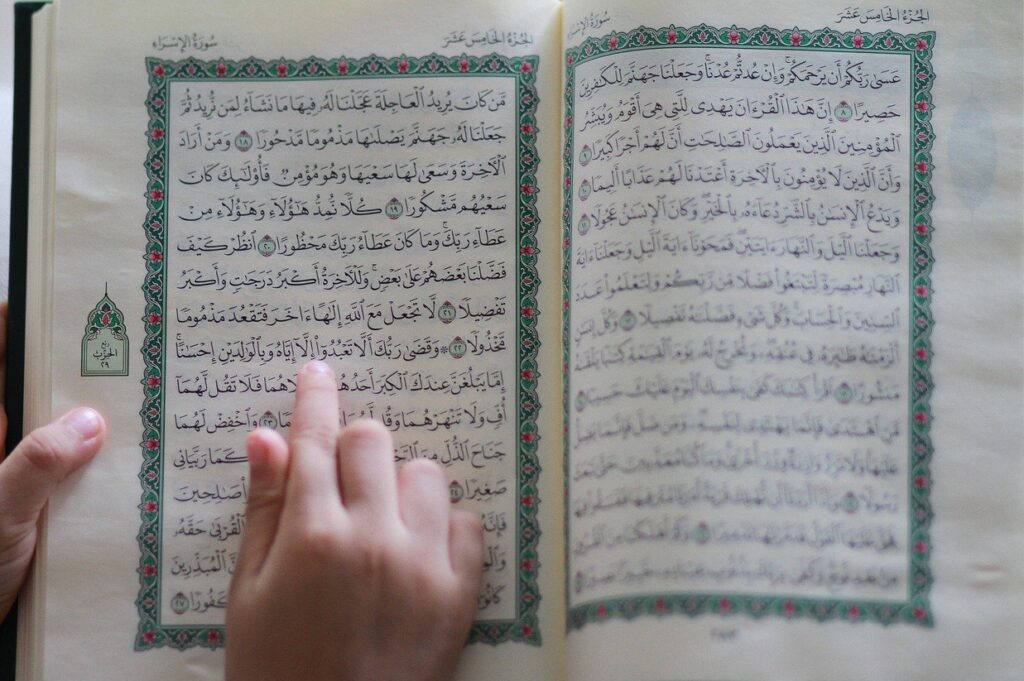 الجُزْءُ الخَامِسَ عَشَرَ
سُورَةُ الإِسْرَاءِ
عَسَىٰ رَبُّكُمْ أَن يَرْحَمَكُمْ ۚ وَإِنْ عُدتُّمْ عُدْنَا ۘ وَجَعَلْنَا جَهَنَّمَ لِلْكَٰفِرِينَ
حَصِيرًا ٨ إِنَّ هَٰذَا ٱلْقُرْءَانَ يَهْدِى لِلَّتِى هِىَ أَقْوَمُ وَيُبَشِّرُ
ٱلْمُؤْمِنِينَ ٱلَّذِينَ يَعْمَلُونَ ٱلصَّٰلِحَٰتِ أَنَّ لَهُمْ أَجْرًا كَبِيرًا ٩
وَأَنَّ ٱلَّذِينَ لَا يُؤْمِنُونَ بِٱلْءَاخِرَةِ أَعْتَدْنَا لَهُمْ عَذَابًا أَلِيمًا ١٠
وَيَدْعُ ٱلْإِنسَٰنُ بِٱلشَّرِّ دُعَآءَهُۥ بِٱلْخَيْرِ ۖ وَكَانَ ٱلْإِنسَٰنُ عَجُولًا ١١
وَجَعَلْنَا ٱلَّيْلَ وَٱلنَّهَارَ ءَايَتَيْنِ ۖ فَمَحَوْنَآ ءَايَةَ ٱلَّيْلِ وَجَعَلْنَآ ءَايَةَ
ٱلنَّهَارِ مُبْصِرَةً لِّتَبْتَغُوا۟ فَضْلًا مِّن رَّبِّكُمْ وَلِتَعْلَمُوا۟ عَدَدَ
ٱلسِّنِينَ وَٱلْحِسَابَ ۚ وَكُلَّ شَىْءٍ فَصَّلْنَٰهُ تَفْصِيلًا ١٢ وَكُلَّ إِنسَٰنٍ
أَلْزَمْنَٰهُ طَٰٓئِرَهُۥ فِى عُنُقِهِۦ ۖ وَنُخْرِجُ لَهُۥ يَوْمَ ٱلْقِيَٰمَةِ كِتَٰبًا يَلْقَىٰهُ
مَنشُورًا ١٣ ٱقْرَأْ كِتَٰبَكَ كَفَىٰ بِنَفْسِكَ ٱلْيَوْمَ عَلَيْكَ حَسِيبًا ١٤
مَّنِ ٱهْتَدَىٰ فَإِنَّمَا يَهْتَدِى لِنَفْسِهِۦ ۖ وَمَن ضَلَّ فَإِنَّمَا يَضِلُّ
عَلَيْهَا ۚ وَلَا تَزِرُ وَازِرَةٌ وِزْرَ أُخْرَىٰ ۗ وَمَا كُنَّا مُعَذِّبِينَ حَتَّىٰ نَبْعَثَ
رَسُولًا ١٥ وَإِذَآ أَرَدْنَآ أَن نُّهْلِكَ قَرْيَةً أَمَرْنَا مُتْرَفِيهَا فَفَسَقُوا۟ فِيهَا
فَحَقَّ عَلَيْهَا ٱلْقَوْلُ فَدَمَّرْنَٰهَا تَدْمِيرًا ١٦ وَكَمْ أَهْلَكْنَا مِنَ ٱلْقُرُونِ
مِنۢ بَعْدِ نُوحٍ ۗ وَكَفَىٰ بِرَبِّكَ بِذُنُوبِ عِبَادِهِۦ خَبِيرًۢا بَصِيرًا ١٧
الجُزْءُ الخَامِسَ عَشَرَ
سُورَةُ الإِسْرَاءِ
مَّن كَانَ يُرِيدُ ٱلْعَاجِلَةَ عَجَّلْنَا لَهُۥ فِيهَا مَا نَشَآءُ لِمَن نُّرِيدُ ثُمَّ
جَعَلْنَا لَهُۥ جَهَنَّمَ يَصْلَىٰهَا مَذْمُومًا مَّدْحُورًا ١٨ وَمَنْ أَرَادَ
ٱلْءَاخِرَةَ وَسَعَىٰ لَهَا سَعْيَهَا وَهُوَ مُؤْمِنٌ فَأُو۟لَٰٓئِكَ كَانَ
سَعْيُهُم مَّشْكُورًا ١٩ كُلًّا نُّمِدُّ هَٰٓؤُلَآءِ وَهَٰٓؤُلَآءِ مِنْ
عَطَآءِ رَبِّكَ ۚ وَمَا كَانَ عَطَآءُ رَبِّكَ مَحْظُورًا ٢٠ ٱنظُرْ كَيْفَ
فَضَّلْنَا بَعْضَهُمْ عَلَىٰ بَعْضٍ ۚ وَلَلْءَاخِرَةُ أَكْبَرُ دَرَجَٰتٍ وَأَكْبَرُ
تَفْضِيلًا ٢١ لَّا تَجْعَلْ مَعَ ٱللَّهِ إِلَٰهًا ءَاخَرَ فَتَقْعُدَ مَذْمُومًا
مَّخْذُولًا ٢٢ ۞ وَقَضَىٰ رَبُّكَ أَلَّا تَعْبُدُوٓا۟ إِلَّآ إِيَّاهُ وَبِٱلْوَٰلِدَيْنِ إِحْسَٰنًا ۚ
إِمَّا يَبْلُغَنَّ عِندَكَ ٱلْكِبَرَ أَحَدُهُ لَاهُمَا فَلَا تَقُل لَّهُمَآ
أُفٍّ وَلَا تَنْهَرْهُمَا وَقُل لَّهُمَا مًا ٢٣ وَٱخْفِضْ لَهُمَا
جَنَاحَ ٱلذُّلِّ مِنَ كَمَا رَبَّيَانِى
صَغِيرًا ٢٤ صَٰلِحِينَ
فَإِنَّهُۥ ٱلْقُرْبَىٰ حَقَّهُۥ
وَٱلْمِ ٱلْمُبَذِّرِينَ
كَانُوٓا۟ كَفُورًا ٢٧
ربع
الحزب
٢٩